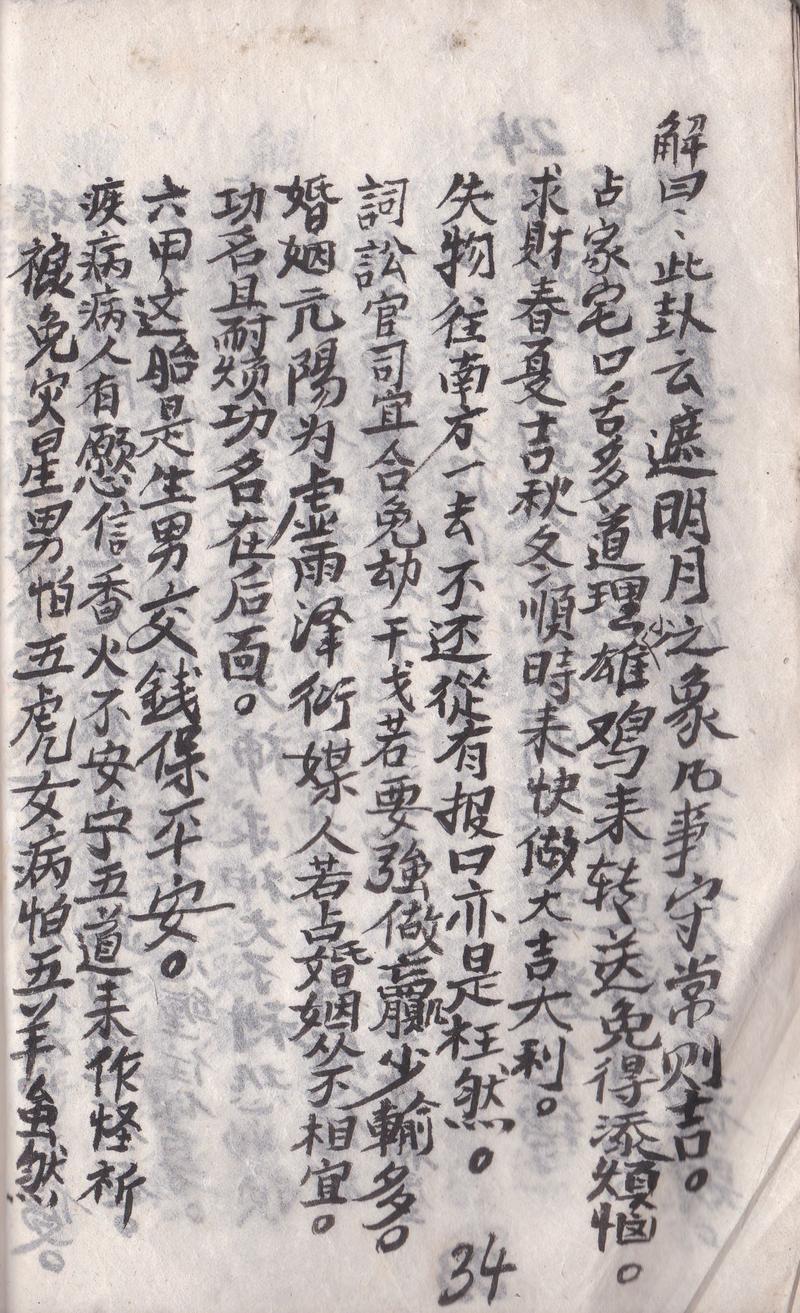 解曰：此卦云遮明月之象凡事守常则吉。
占家宅口舌多道理少雄鸡来转送免得添烦恼。
求財春夏吉秋冬順時来快做大吉大利。
失物往南方一去不还從有报口亦是枉然。
詞訟官司宜合免动干戈若要強做贏少輸多。
婚姻亢陽为虚雨泽衍媒人若占婚姻从不相宜。
功名且耐烦功名在后面。
六甲这胎是生男交銭保平安。
疾病病人有愿信香火不安宁五道来作怪祈
禳免灾星男怕五虎女病怕五羊虽然
34